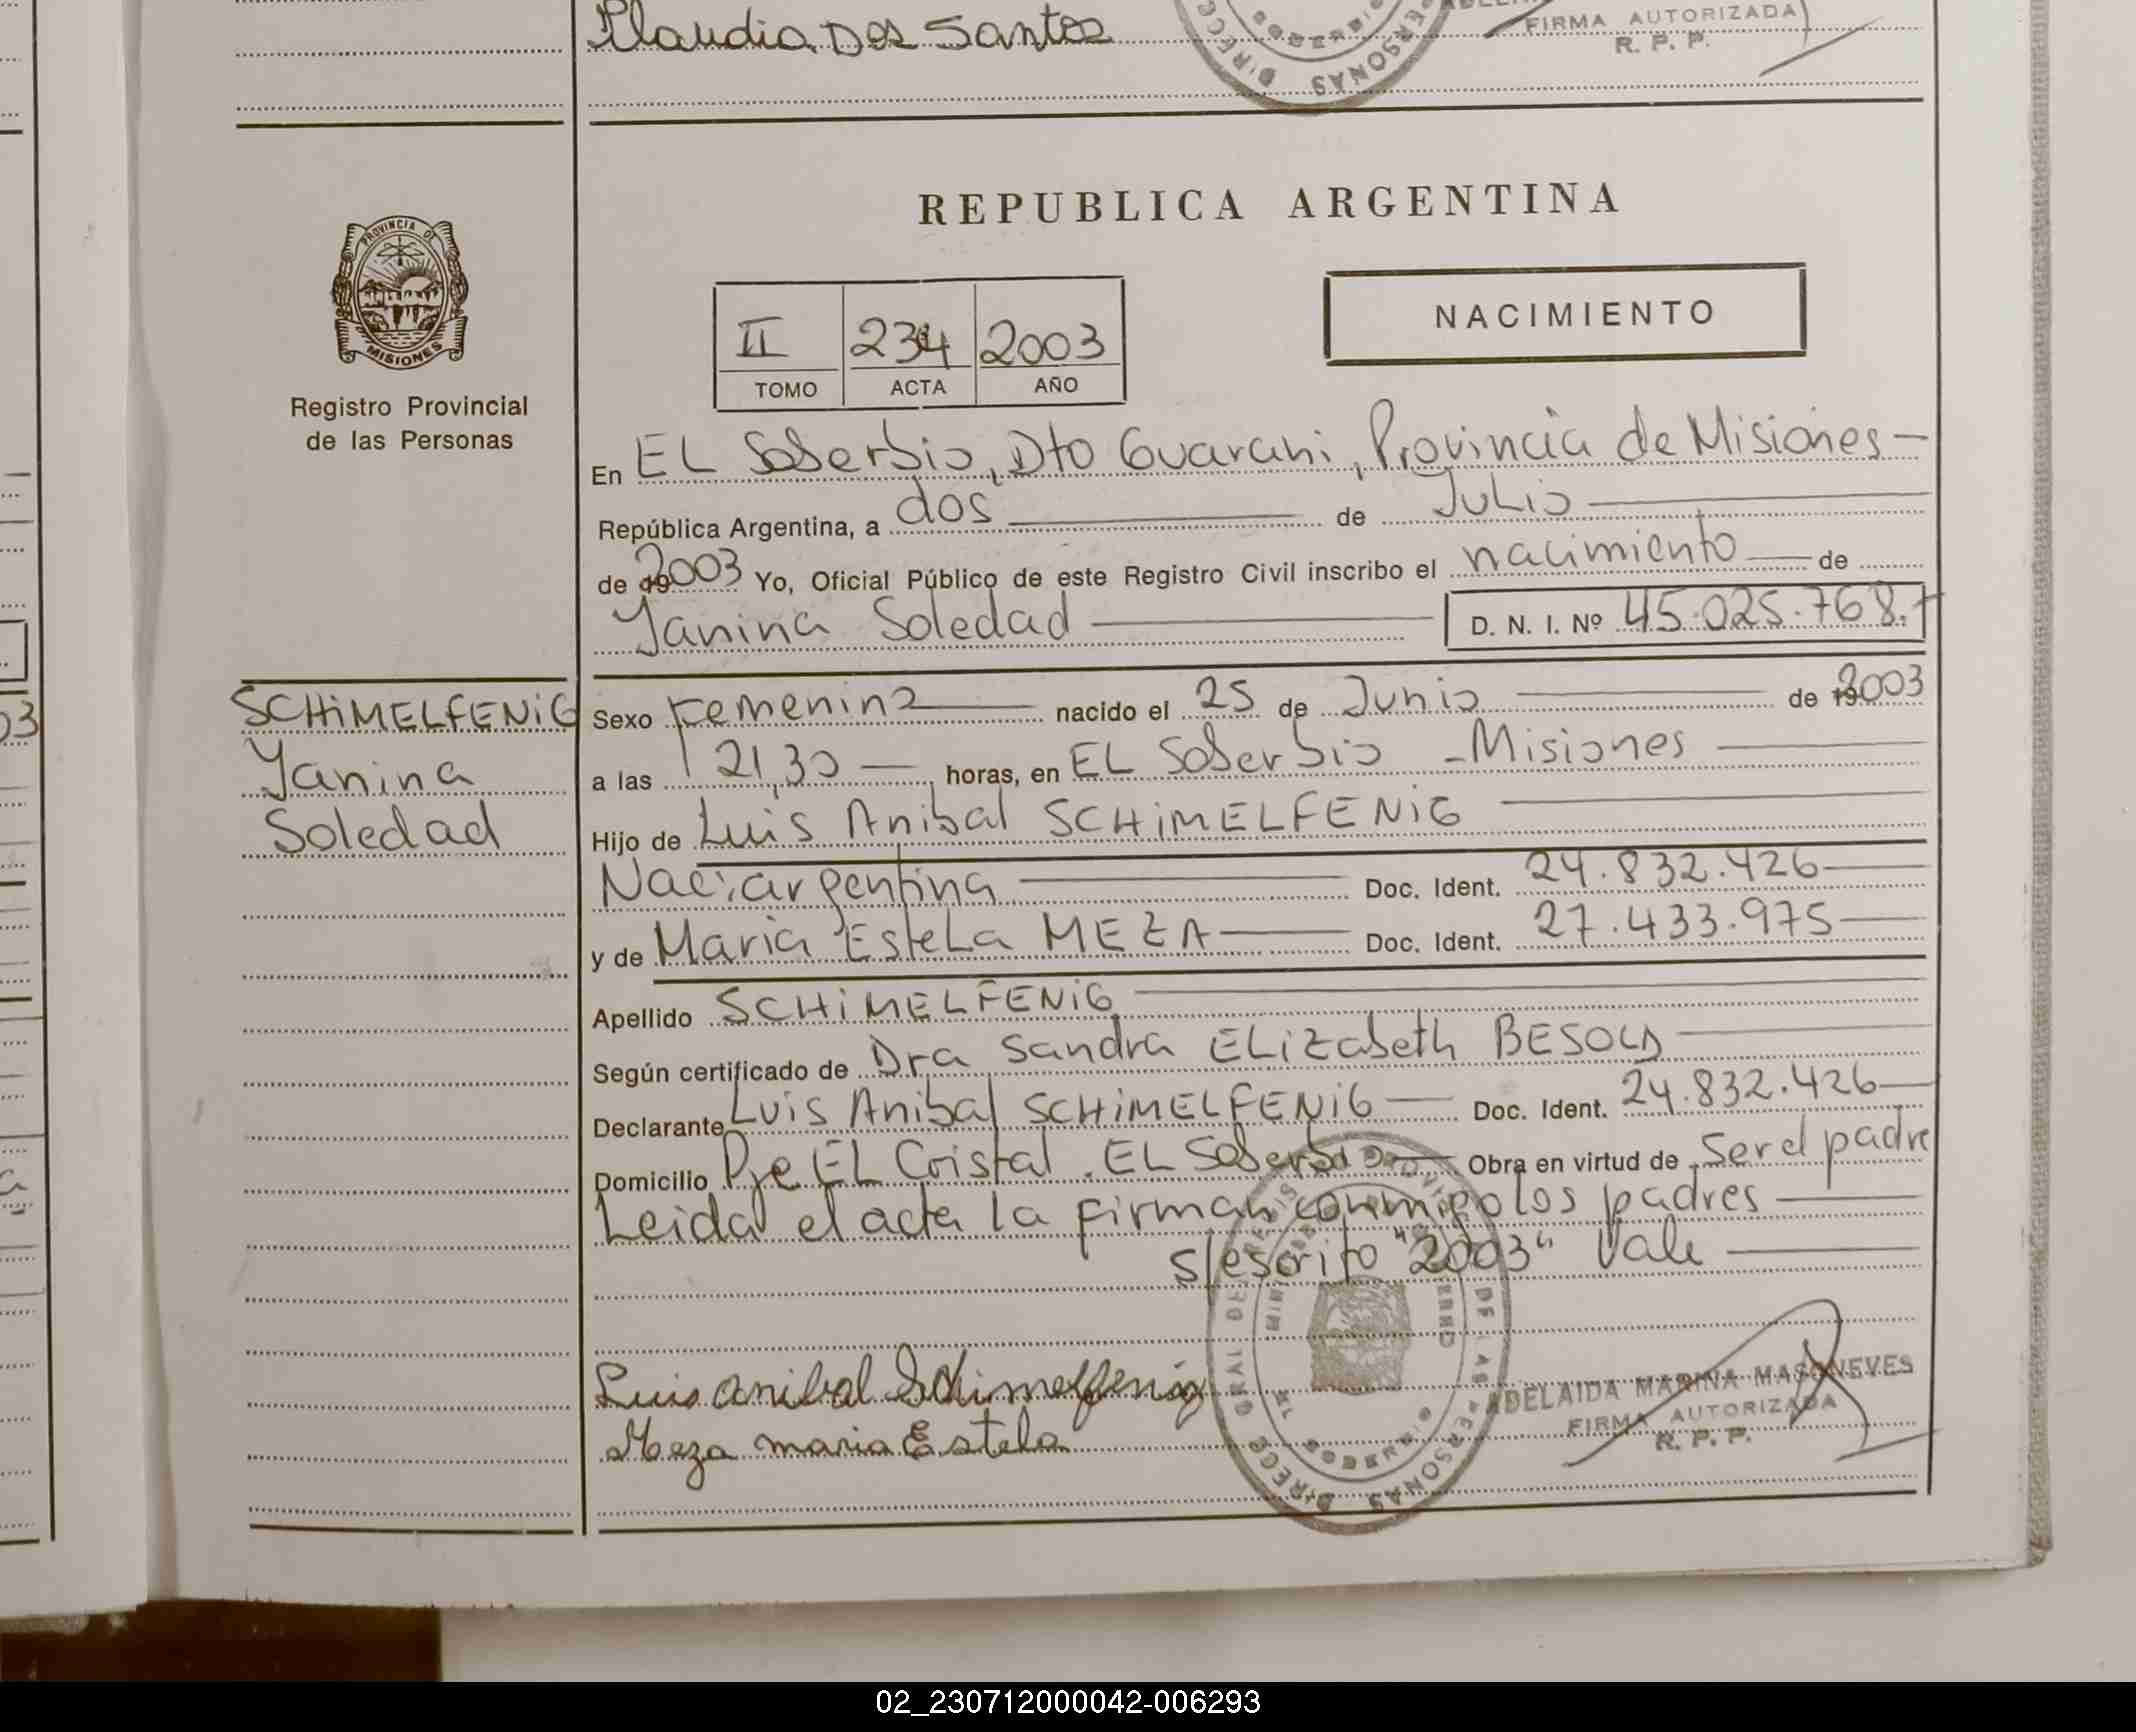 Claudia Dos Santos
FIRMA AUTORIZADA
R. P. P.
PROVINCIA DE
MISIONES
Registro Provincial
de las Personas
REPUBLICA ARGENTINA
II 234 2003
TOMO ACTA AÑO
NACIMIENTO
En EL Soberbio, Dto Guarani, Provincia de Misiones —
República Argentina, a dos — de Julio —
de 192003 Yo, Oficial Público de este Registro Civil inscribo el nacimiento — de
Yanina Soledad — D. N. I. Nº 45.025.768.-
SCHiMELFENiG
Yanina
Soledad
Sexo Femenino — nacido el 25 de Junio — de 192003
a las 21,30 — horas, en EL Soberbio - Misiones —
Hijo de Luis Anibal SCHiMELFENiG —
Nac: argentina — Doc. Ident. 24.832.426 —
y de Maria Estela MEZA — Doc. Ident. 27.433.975 —
Apellido SCHiMELFENiG —
Según certificado de Dra Sandra ELizabeth BESOLD —
Declarante Luis Anibal SCHiMELFENiG — Doc. Ident. 24.832.426 —
Domicilio Pje EL Cristal. EL Soberbio — Obra en virtud de ser el padre
Leida el acta la firman conmigo los padres —
s/escrito "2003" Vale —
Luis anibal Schimelfenig
Meza maria Estela
ADELAIDA MARINA MASONEVES
FIRMA AUTORIZADA
R. P. P.
02_230712000042-006293